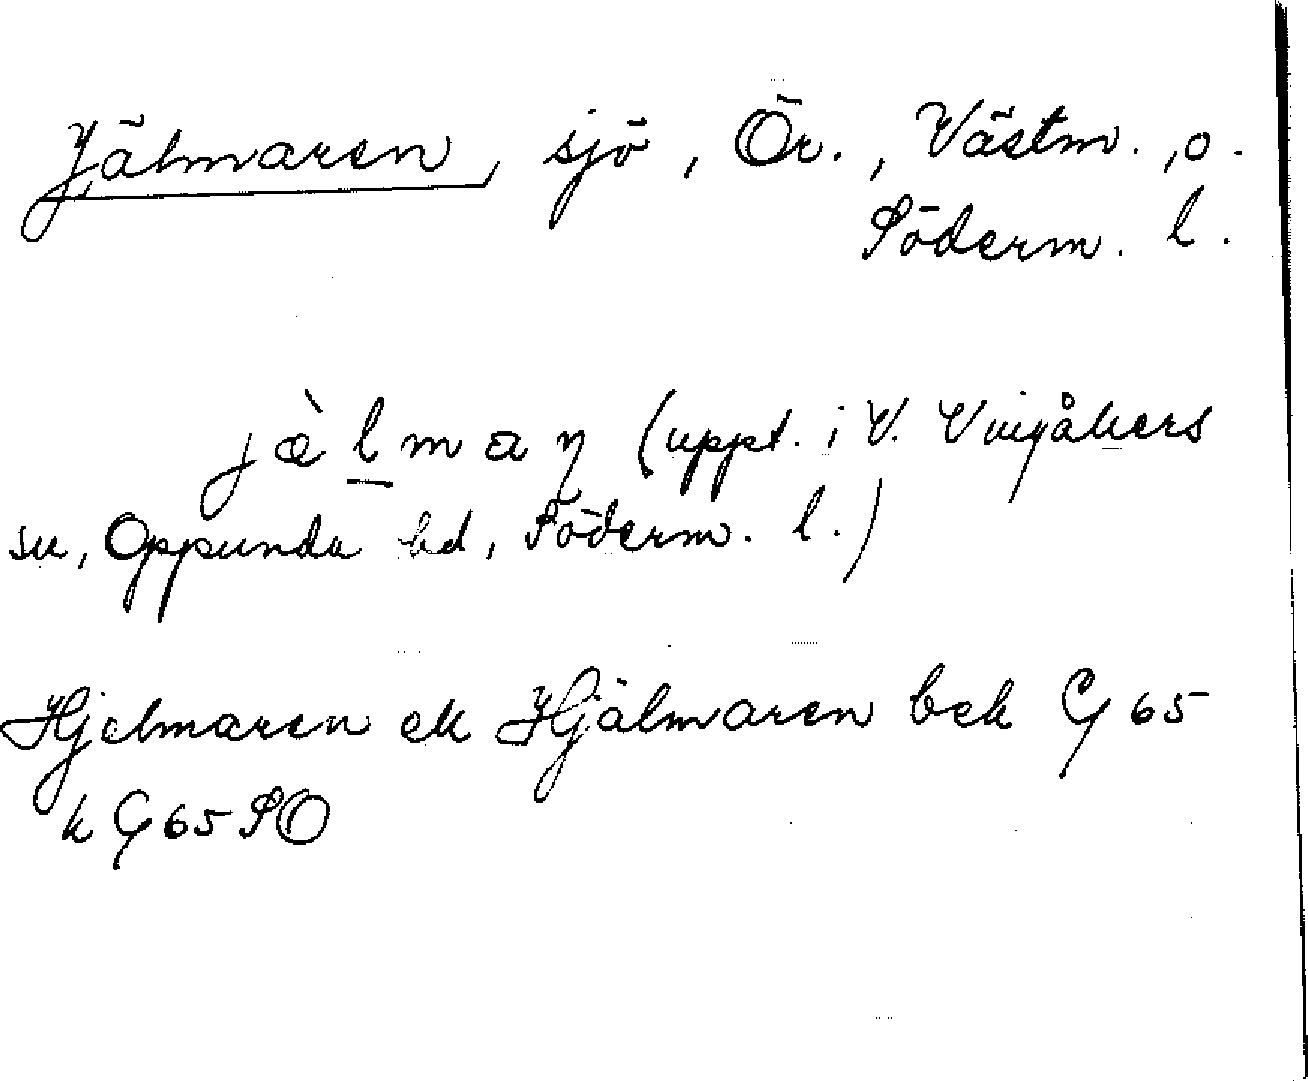 Hjälmaren, sjö, Ör., Västm., o.
Söderm. l.
jæ̀lman (uppt. i V. Vingåkers
sn, Oppunda hd, Söderm. l.)
Hjelmaren ek Hjälmaren bek G 65
k G 65 SO